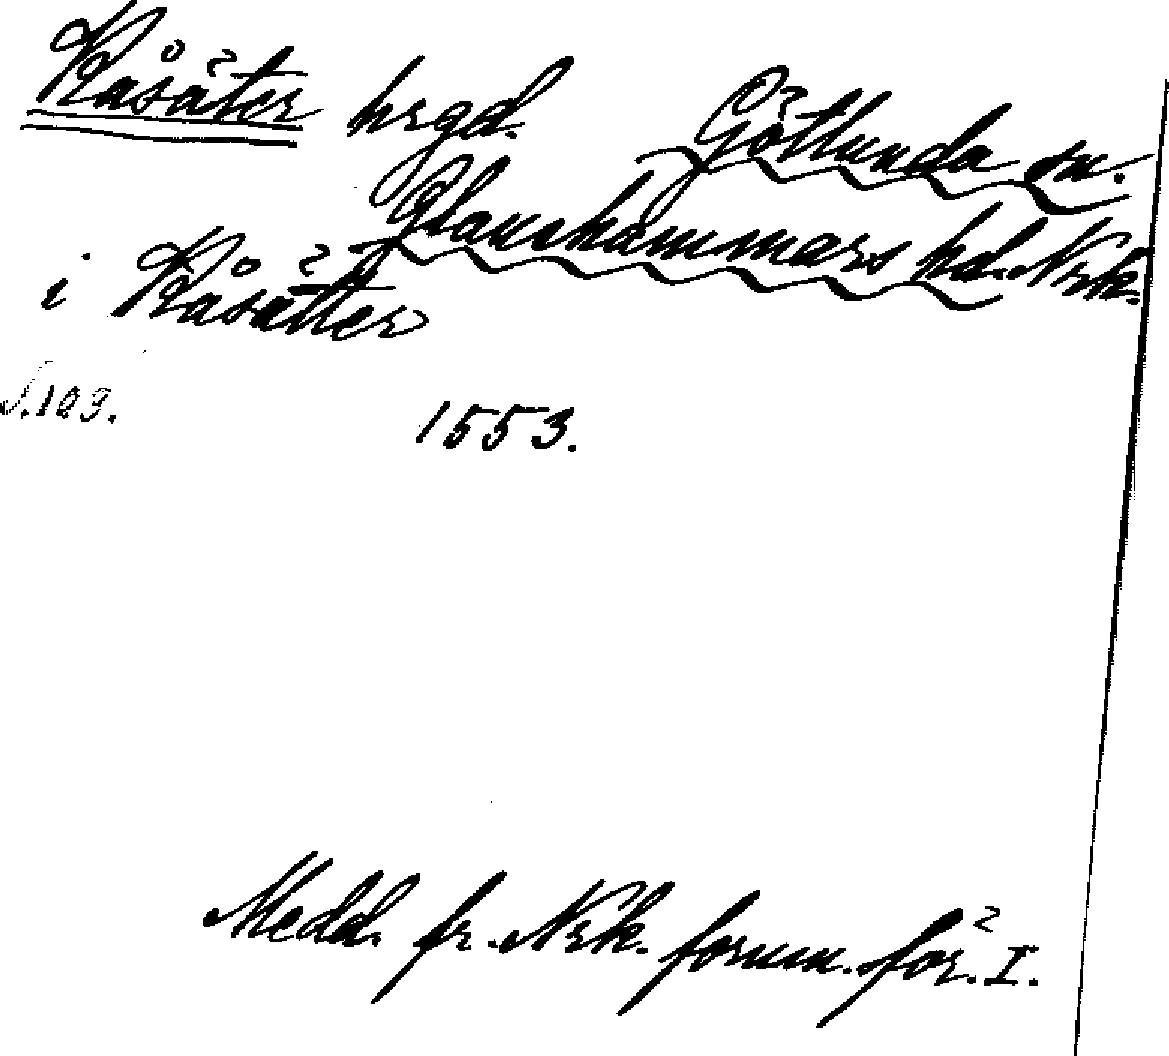 Kåsäter hrgd. Götlunda sn.
Glanshammars hd. Nrk.
i Kåsätter
S. 109.
1553.
Medd. fr. Nrk. fornm. för. I.